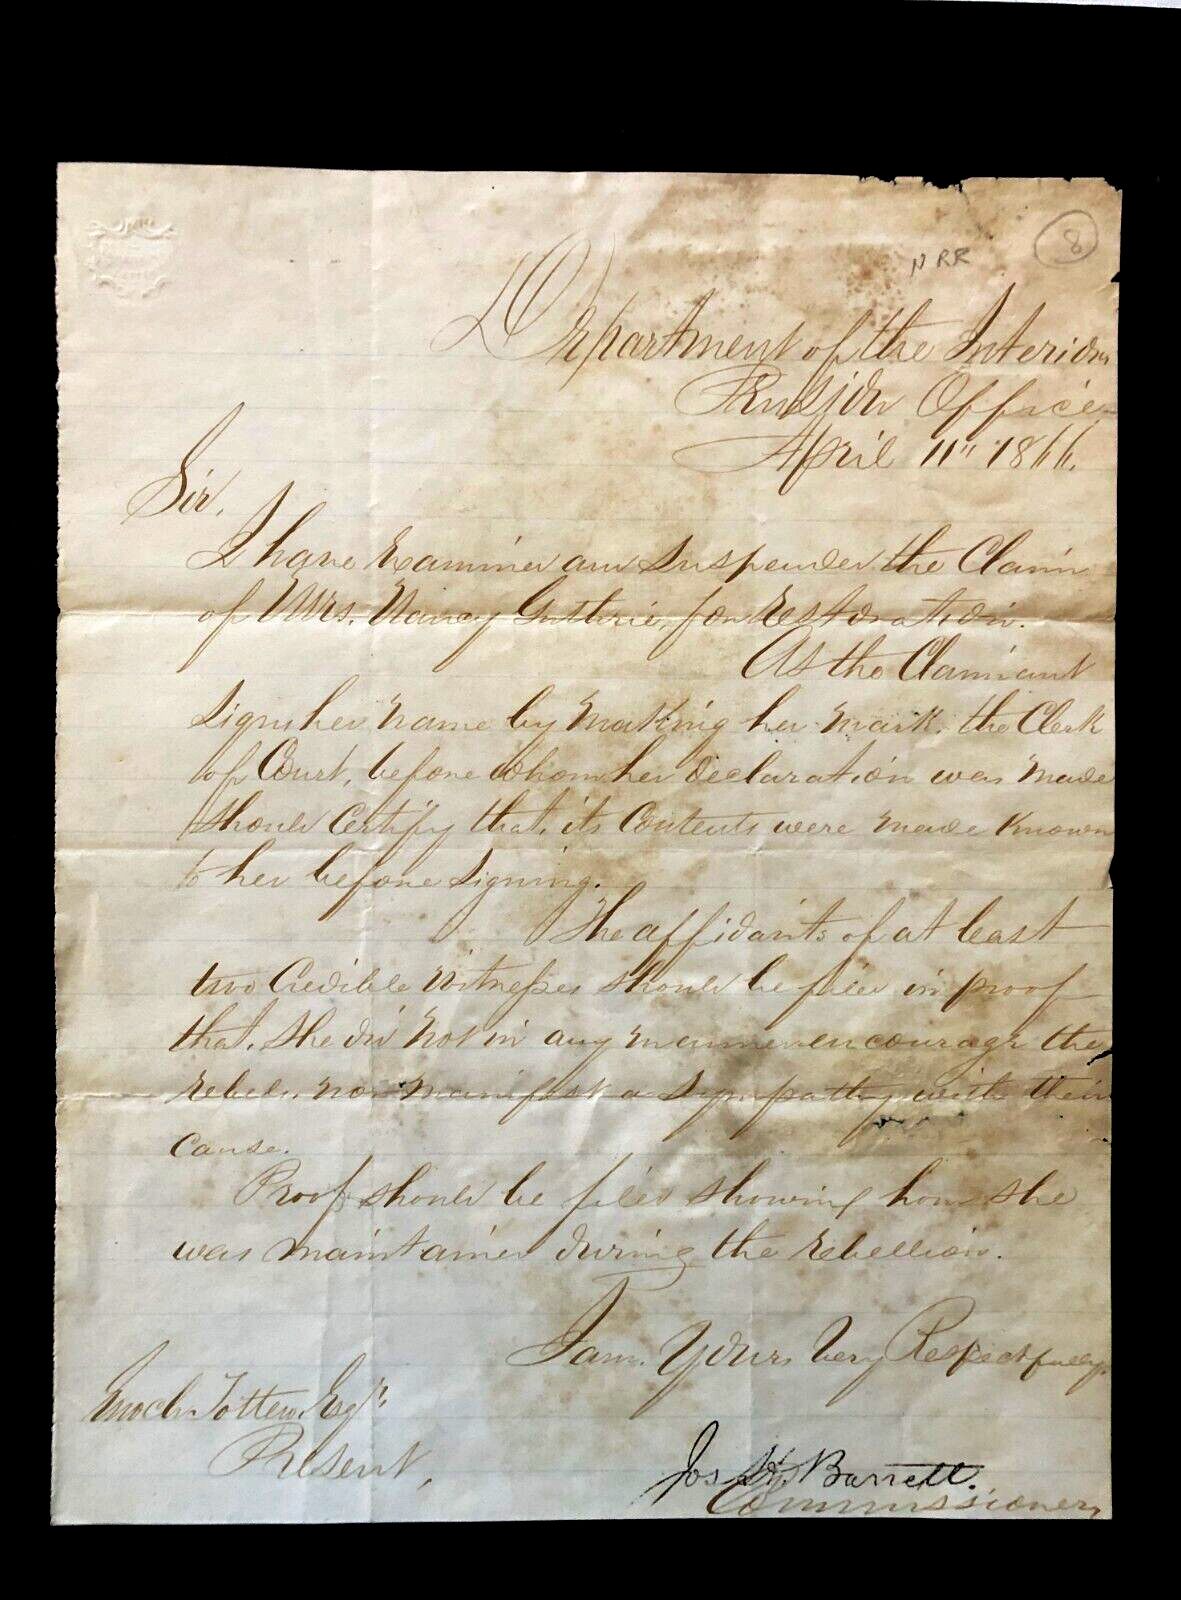 N RR
8
Department of the Interior
Pension Office
April 11" 1866.
Sir,
I have examined and suspended the Claim
of Mrs. Nancy Guthrie, for restoration.
As the Claimant
signs her name by making her mark, the Clerk
of Court, before whom her declaration was made
should certify that, its contents were made known
to her before signing.
The affidavits of at least
two Credible witnesses should be filed in proof
that, she did not in any manner encourage the
rebels, nor manifest a sympathy with their
cause.
Proof should be filed showing how she
was maintained during the rebellion.
I am, Yours Very Respectfully,
Enoch Totten, Esqr.
Present,
Jos. H. Barrett.
Commissioner,